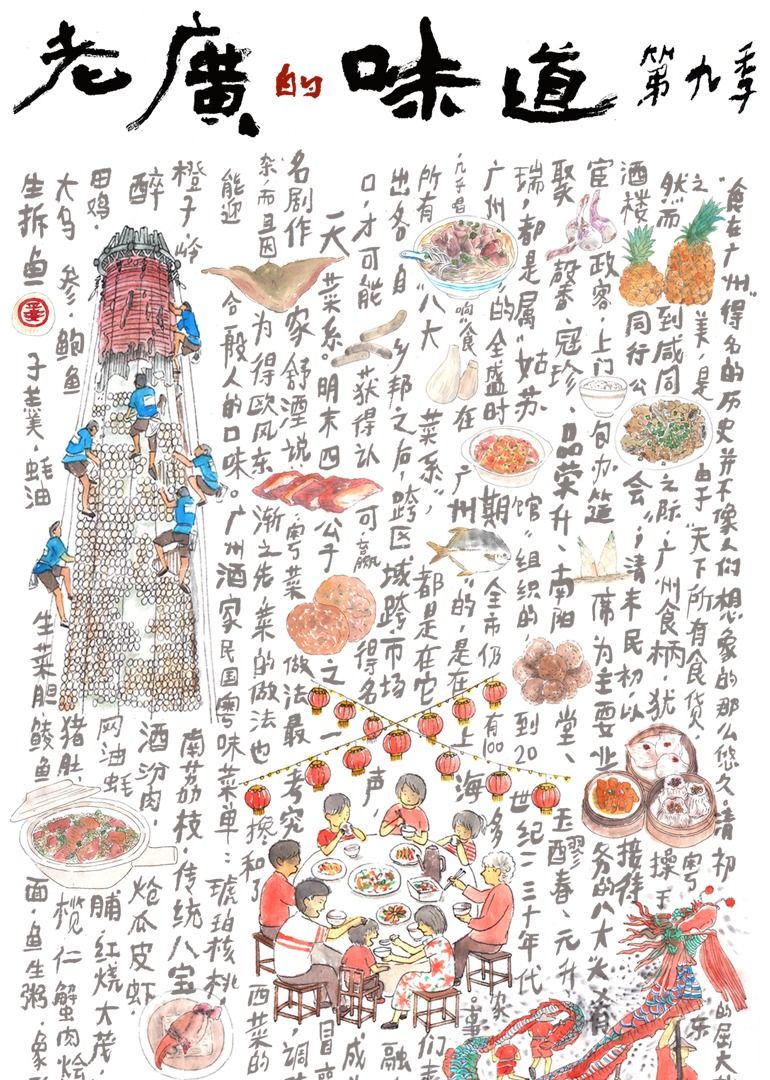 老廣的味道 第九季
“食在广州”得名的历史并不像人们想象的那么悠久,清初的屈大
之美,是由于“天下所有食货,粤
然而到咸同之际,广州食柄,犹操
酒楼同行公会”,清末民初,以接待
宦政客,上门包办筵席为主要业务的八大
聚馨、冠珍、品荣升、南阳堂、玉醪春、元升
瑞,都是属“姑苏馆”组织的,到20世纪二三十年代
广州的全盛时期,全市仍有100多家
唱响“食在广州”的,是在上海。事
所有“八大菜系”,都是在它们
出各自乡邦之后,跨区域跨市场融
口,才可能获得认可,赢得名声,成
一天菜系。明末四公子之一冒襄
名剧作家舒湮说:粤菜做法最考究,调
杂,而且因为得欧风东渐之先,菜的做法也搀和了西菜的
能迎合一般人的口味。广州酒家民国粤味菜单:琥珀核桃,
橙子,岭南荔枝,传统八宝
醉酒汾肉,炝瓜皮虾,
田鸡,网油蚝脯,红烧大茂,
大乌参,鲍鱼猪肚,榄仁蟹肉烩
生拆鱼子羹,蚝油生菜胆鲮鱼面,鱼生粥,象形